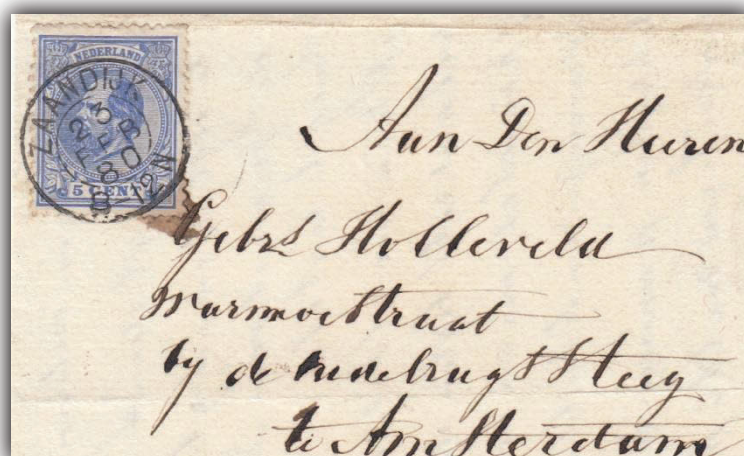 NEDERLAND
5 CENT
ZAANDIJK
23 FEB 80
8-12N
Aan Den Heeren
Gebrs Holleveld
Warmoestraat
by de oudebrugsteeg
te Amsterdam